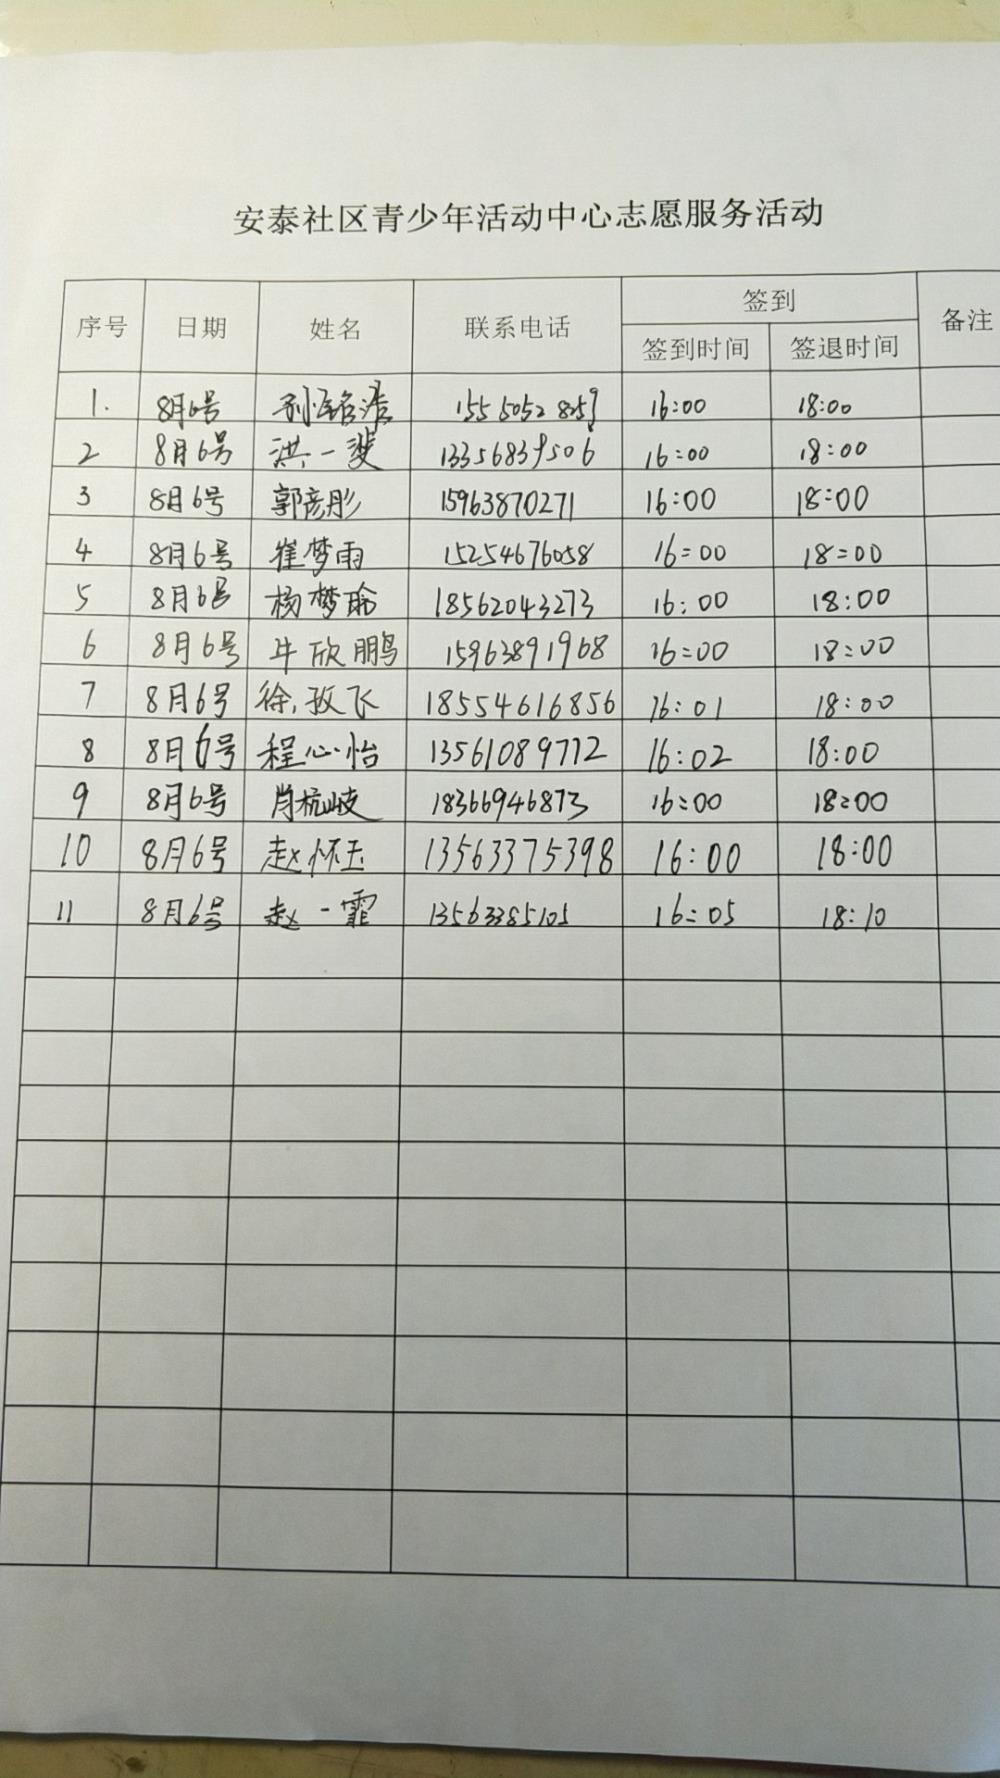 安泰社区青少年活动中心志愿服务活动
序号 日期 姓名 联系电话 签到 备注
签到时间 签退时间
1. 8月6号 孙铭浩 155 5052 8259 16:00 18:00
2 8月6号 洪一斐 13356839506 16:00 18:00
3 8月6号 郭彦彤 15963870271 16:00 18:00
4 8月6号 崔梦雨 15254676058 16:00 18:00
5 8月6号 杨梦瑜 18562043273 16:00 18:00
6 8月6号 牛欣鹏 15963891968 16:00 18:00
7 8月6号 徐孜飞 18554616856 16:01 18:00
8 8月6号 程心怡 13561089712 16:02 18:00
9 8月6号 肖杭岐 18366946873 16:00 18:00
10 8月6号 赵怀玉 13563375398 16:00 18:00
11 8月6号 赵一霏 13563385105 16:05 18:10